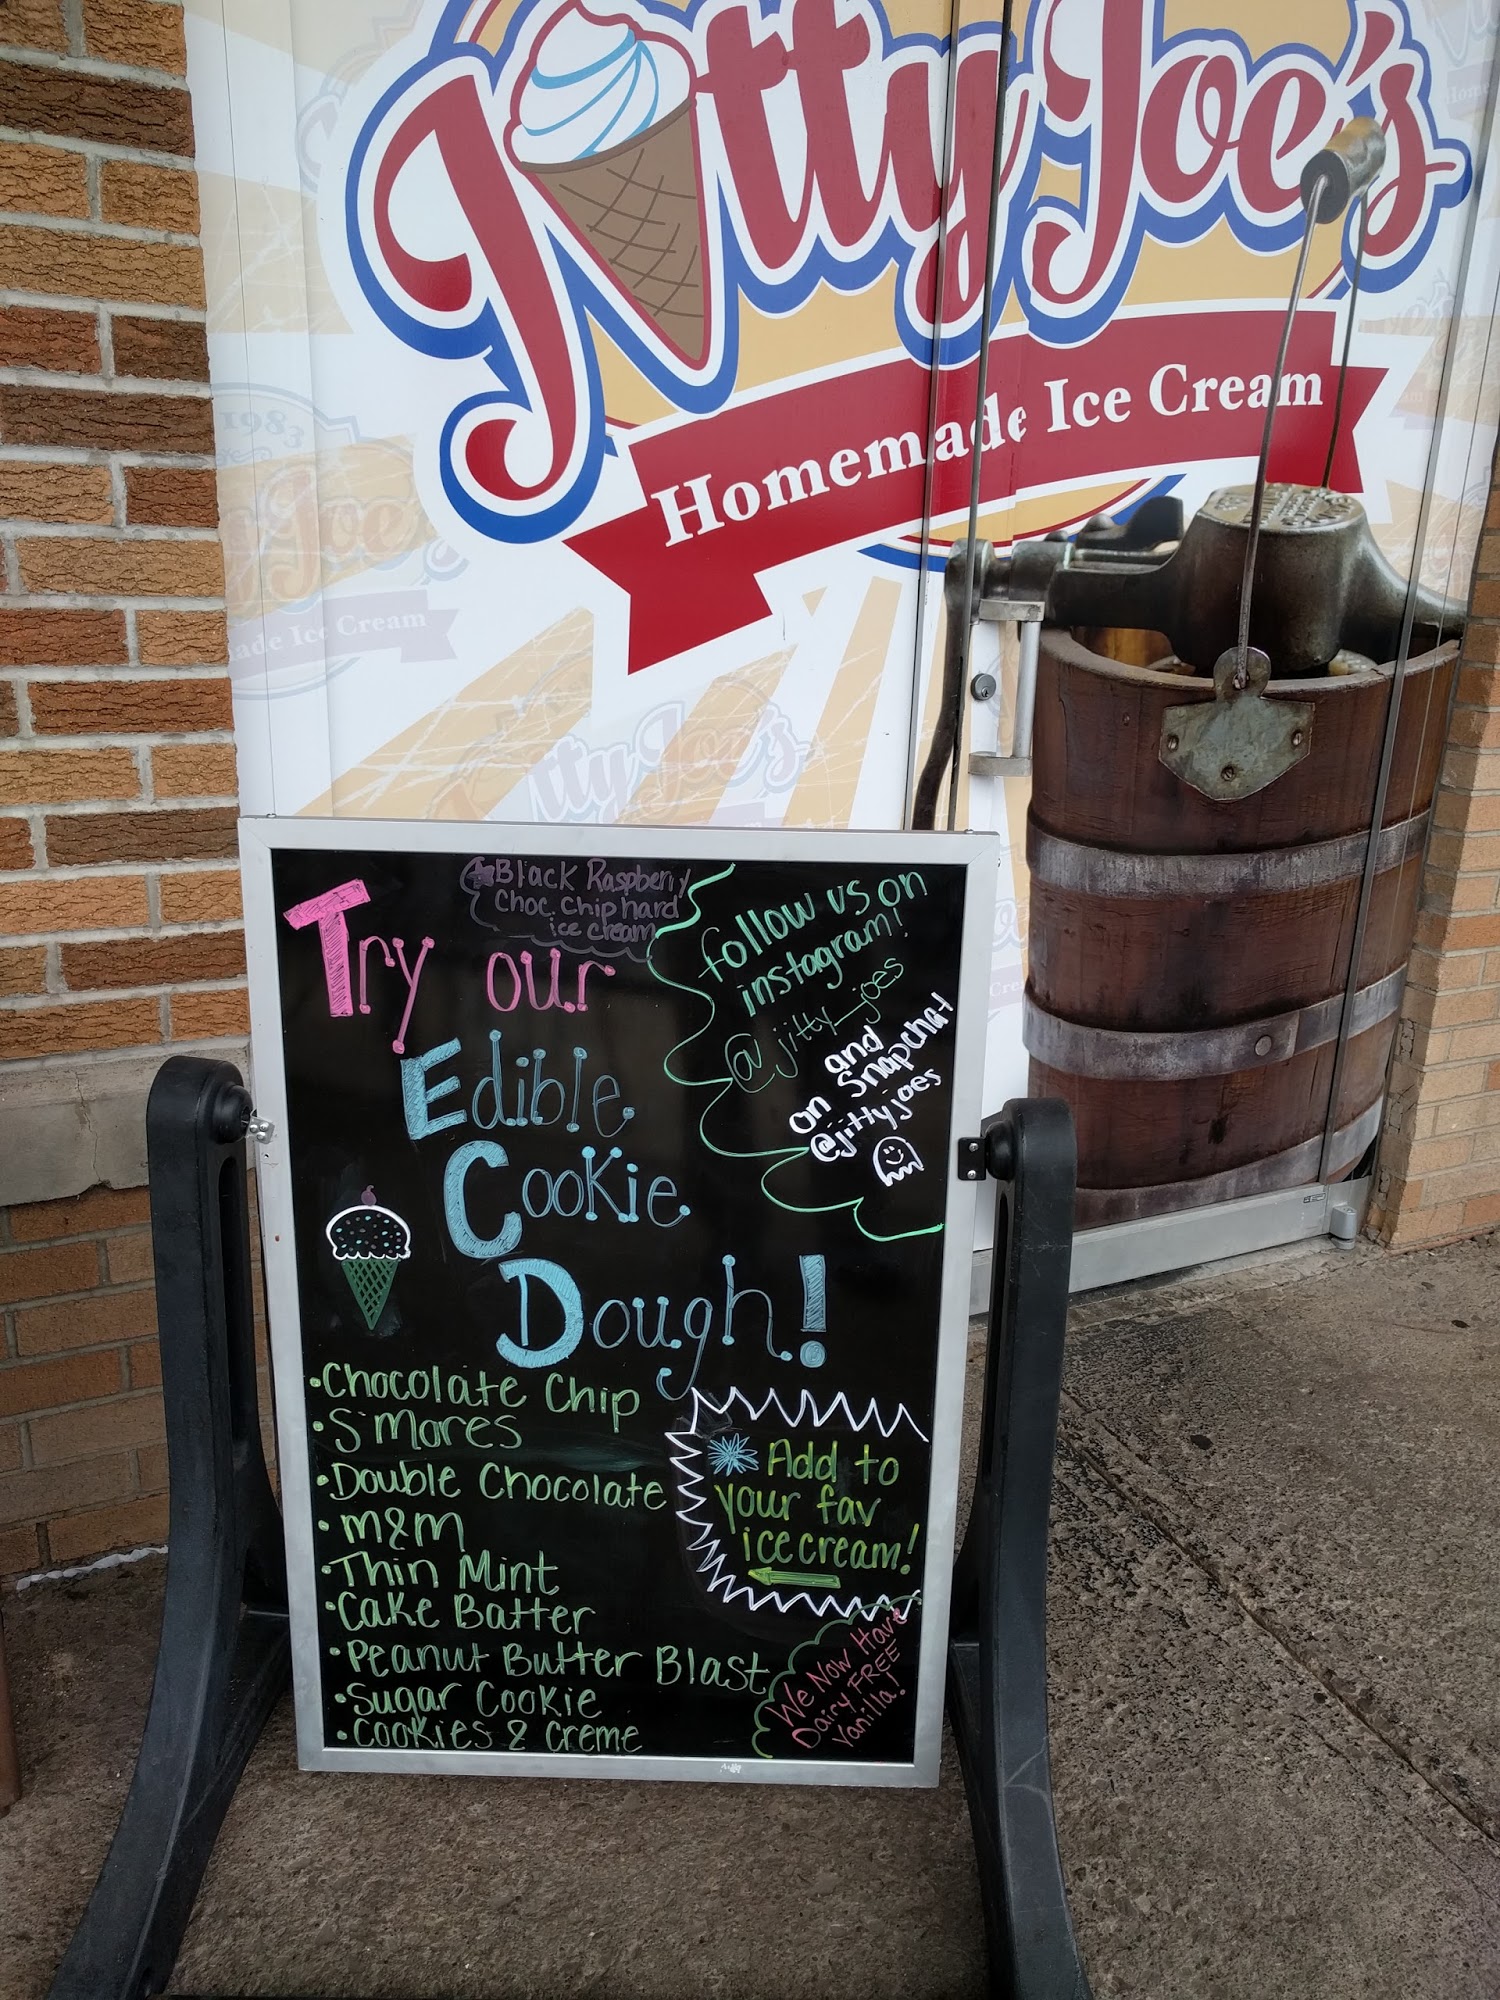 Jitty Joe's
Homemade Ice Cream
1983
Joe
ade Ice Cream
itty Joe's
Black Raspberry
Choc. Chip hard
ice cream
Try our
Edible
Cookie
Dough!
follow us on
instagram!
@jitty_joes
and
on Snapchat
@jittyjoes
•Chocolate Chip
•S'mores
•Double Chocolate
•M&M
•Thin Mint
•Cake Batter
•Peanut Butter Blast
•Sugar Cookie
•Cookies & Creme
Add to
your fav
ice cream!
We Now Have
Dairy FREE
Vanilla!